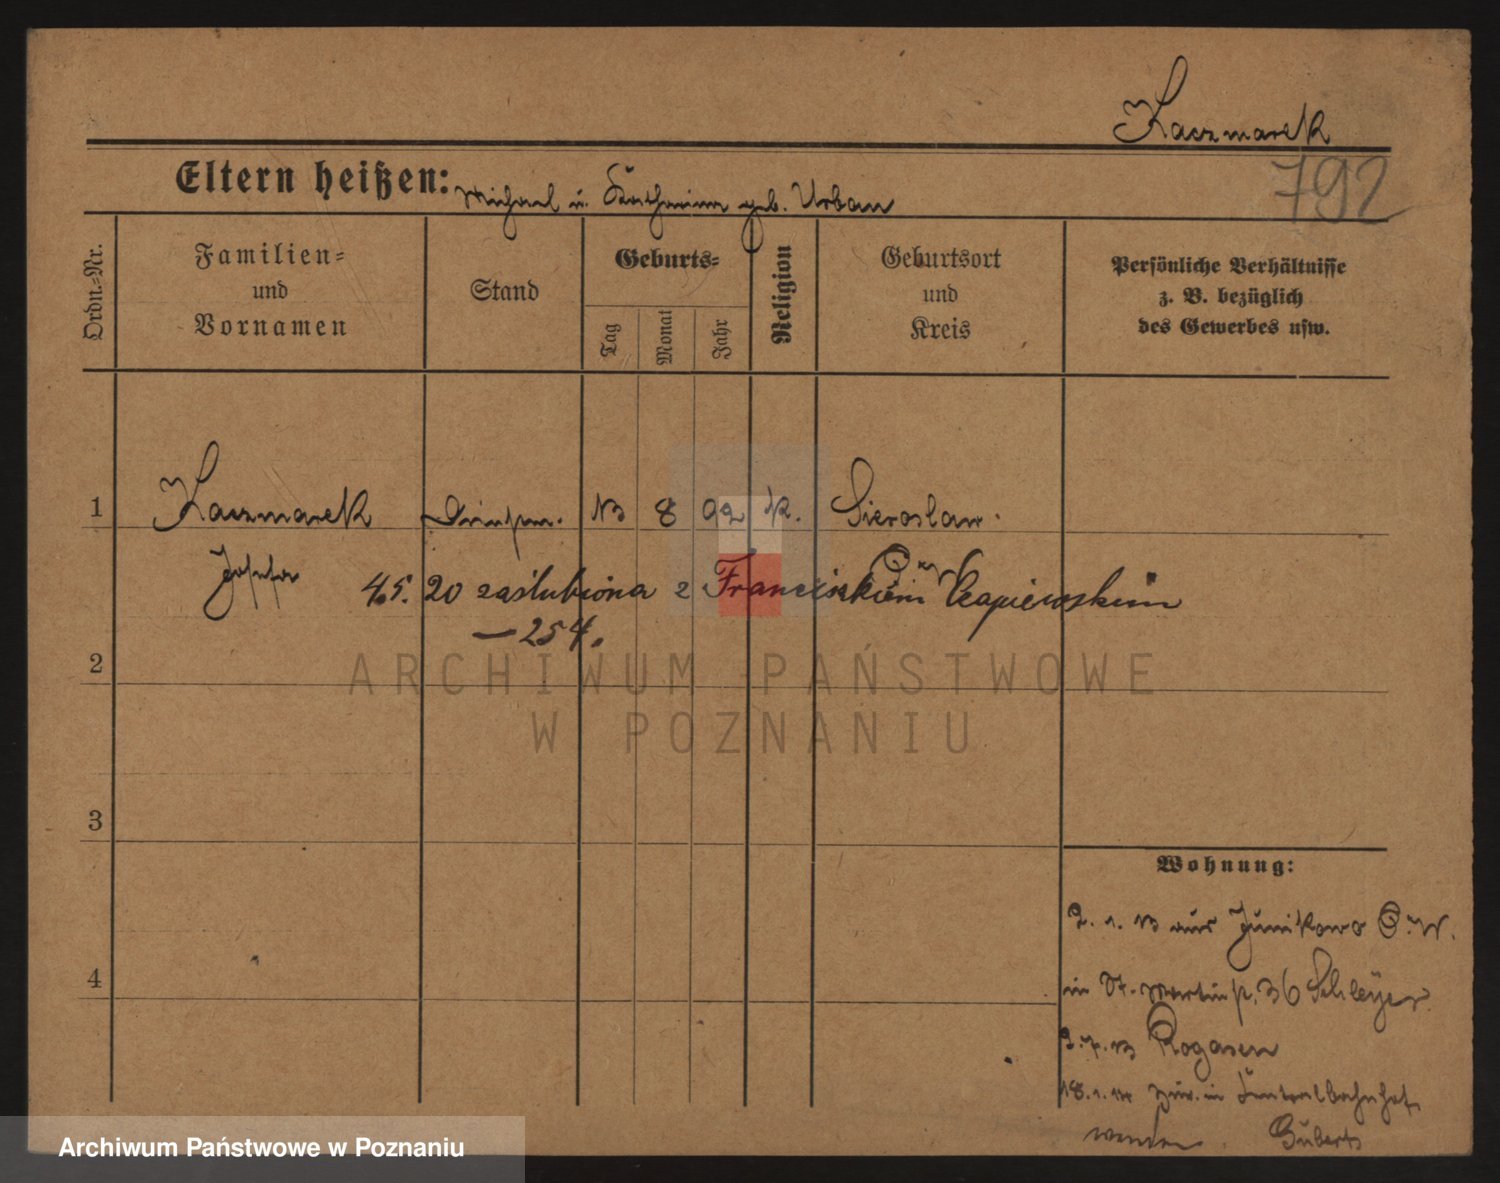 Kaczmarek
792
Eltern heißen: Michael u. Katharina geb. Urban
Ordn.-Nr.
Familien-
und
Vornamen
Stand
Geburts-
Tag
Monat
Jahr
Religion
Geburtsort
und
Kreis
Persönliche Verhältnisse
z. B. bezüglich
des Gewerbes usw.
1 Kaczmarek 13 8 92 k. Sieroslaw.
Josefa
P. W.
4/5. 20 zaślubiona z Franciszkiem Czapiewskim
— 254.
2
3
4
Wohnung:
2. 1. 13 aus Junikowo P. W.
in St. Martinstr. 36 Schleyer.
2. 7. 13 Rogasen
18. 1. 14 zur. in Zentralbahnhof
ARCHIWUM PAŃSTWOWE
W POZNANIU
Archiwum Państwowe w Poznaniu